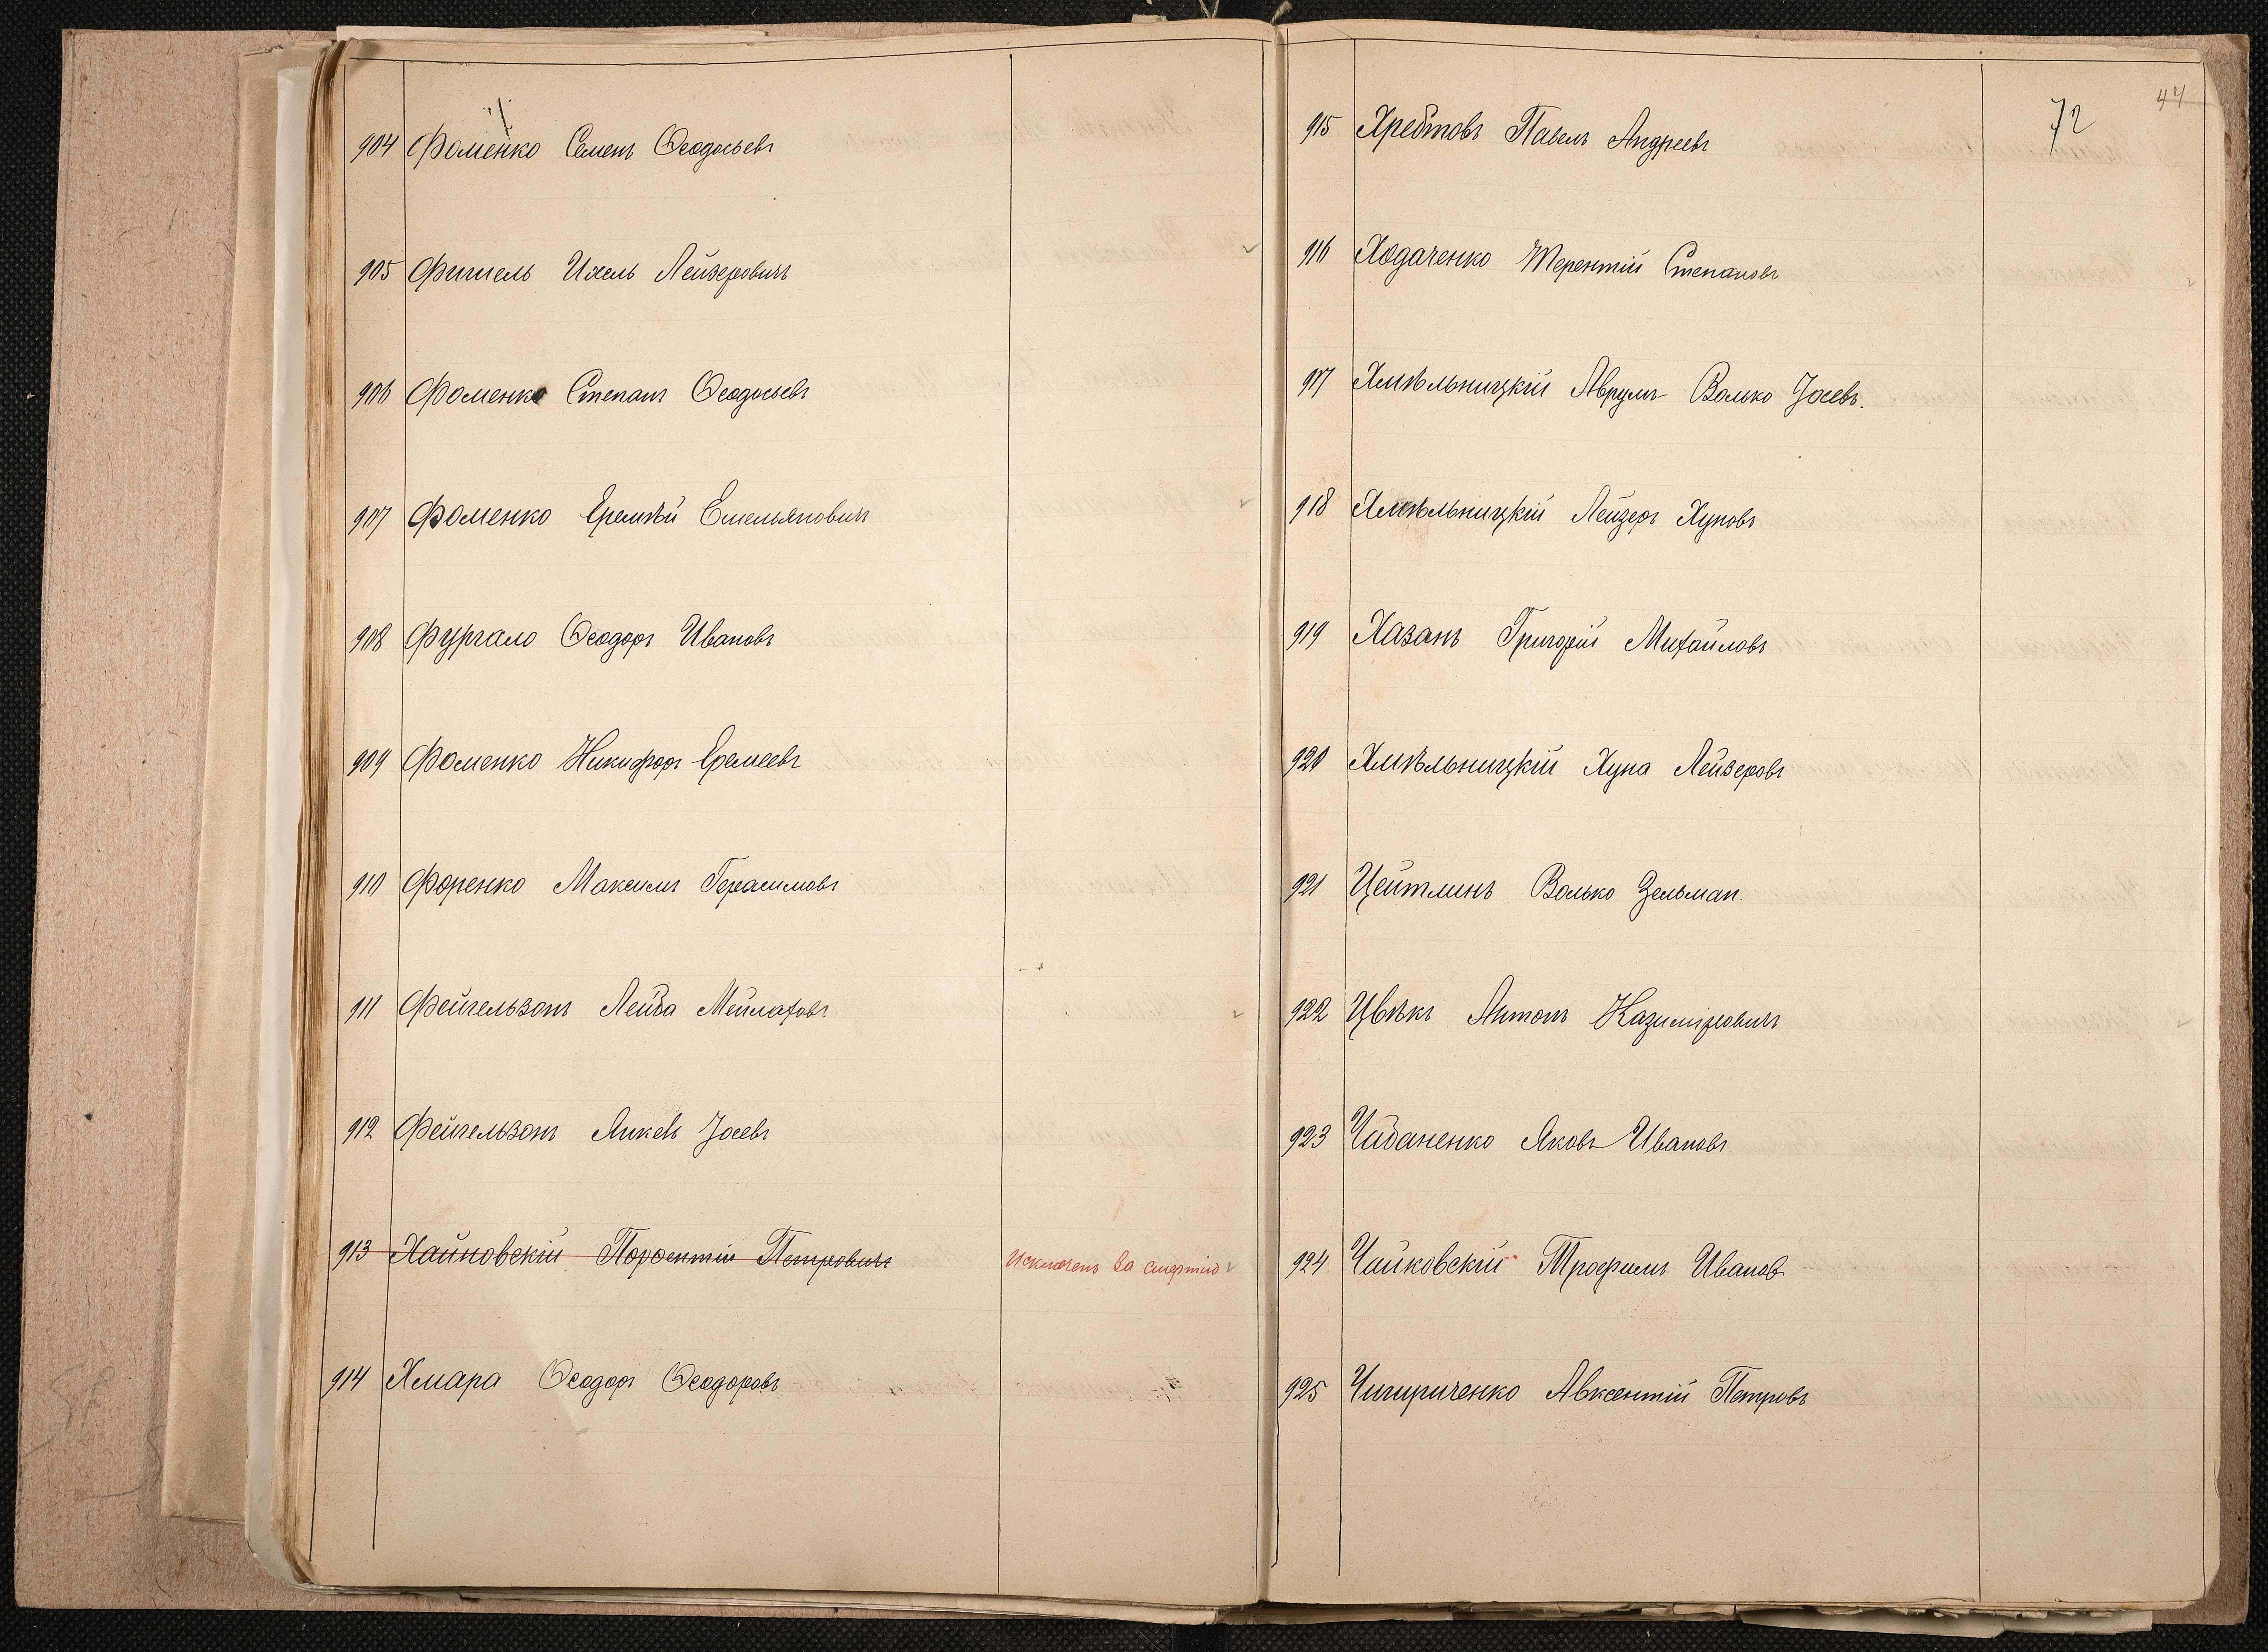 904 Фоменко Семенъ Ѳеодосьевъ
905 Фишель Ихель Лейзеровичъ
906 Фоменко Степанъ Ѳеодосьевъ
907 Фоменко Еремѣй Емельяновичъ
908 Фургало Ѳеодоръ Ивановъ
909 Фоменко Никифоръ Еремеевъ
910 Форенко Максимъ Герасимовъ
911 Фейгельзонъ Лейба Мейлаховъ
912 Фейгельзонъ Янкель Іосевъ
913 Хайновскій Петровичъ Исключенъ за смертію
914 Хмара Ѳеодоръ Ѳеодоровъ
44
72
915 Хребтовъ Павелъ Андреевъ
916 Ходаченко Терентій Степановъ
917 Хмѣльницкій Аврумъ-Волько Іосевъ.
918 Хмѣльницкій Лейзеръ Хуновъ
919 Хазанъ Григорій Михайловъ
920 Хмѣльницкій Хуна Лейзеровъ
921 Цейтлинъ Волько Зельман.
922 Цвѣкъ Антонъ Казиміровичъ
923 Чабаненко Яковъ Ивановъ
924 Чайковскій Трофимъ Иванов
925 Чигириченко Авксентій Петровъ